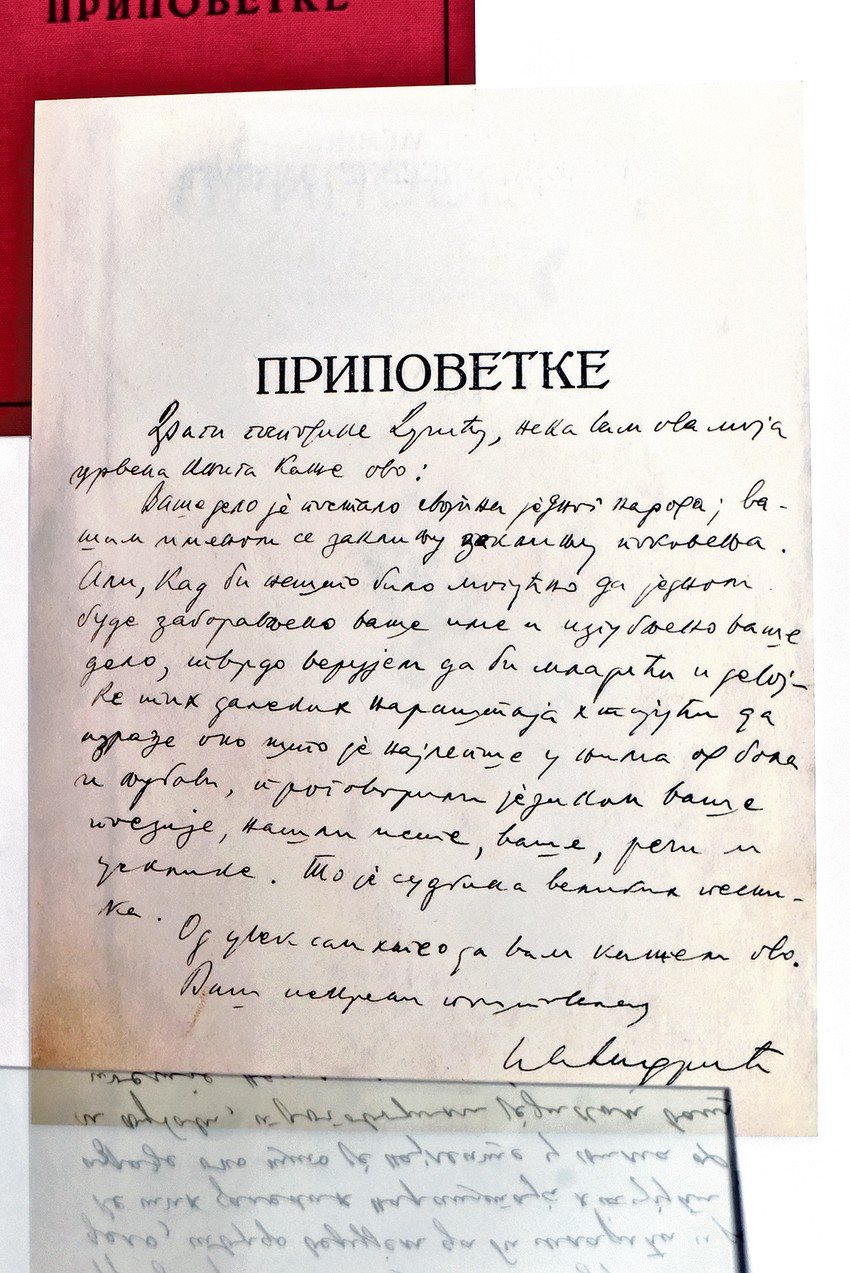 ПРИПОВЕТКЕ
ПРИПОВЕТКЕ
Драги господине Дучићу, нека вам ова моја
црвена књига каже ово:
Ваше дело је постало својина једног народа; ва-
шим именом се заклињу поколења.
Али, кад би нешто било могућно да једном
буде заборављено ваше име и изгубљено ваше
дело, тврдо верујем да би младићи и девој-
ке тих далеких нараштаја хтејући да
изразе оно што је најлепше у њима од бола
и љубави, проговорили језиком ваше
поезије, нашли исте, ваше, речи и
усклике. То је судбина великих песни-
ка.
Од увек сам хтео да вам кажем ово.
Ваш искрени поштовалац
Иво Андрић